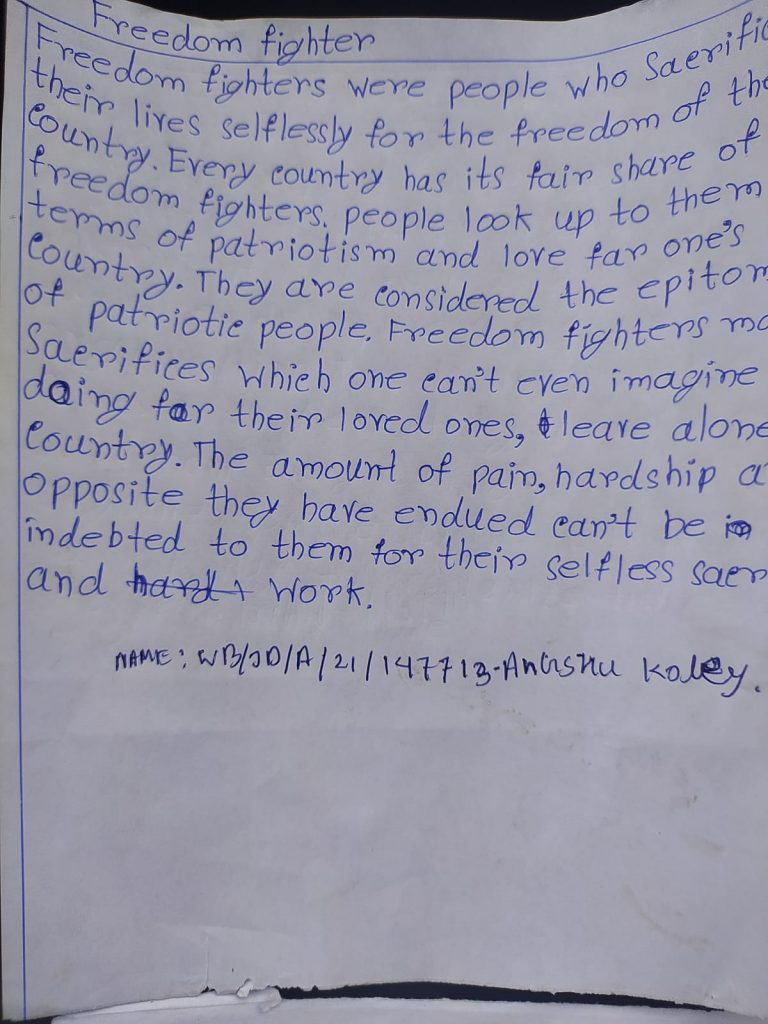 Freedom fighter
Freedom fighters were people who Sacrific
their lives selflessly for the freedom of the
Country. Every country has its fair share of
freedom fighters. people look up to them
terms of patriotism and love far one's
Country. They are considered the epitom
of patriotic people. Freedom fighters ma
Sacrifices which one can't even imagine
daing far their loved ones, leave alone
Country. The amount of pain, hardship a
opposite they have endued can't be
indebted to them for their selfless sacr
and work.
NAME: WB/JD/A/21/147713-Angshu Koley.